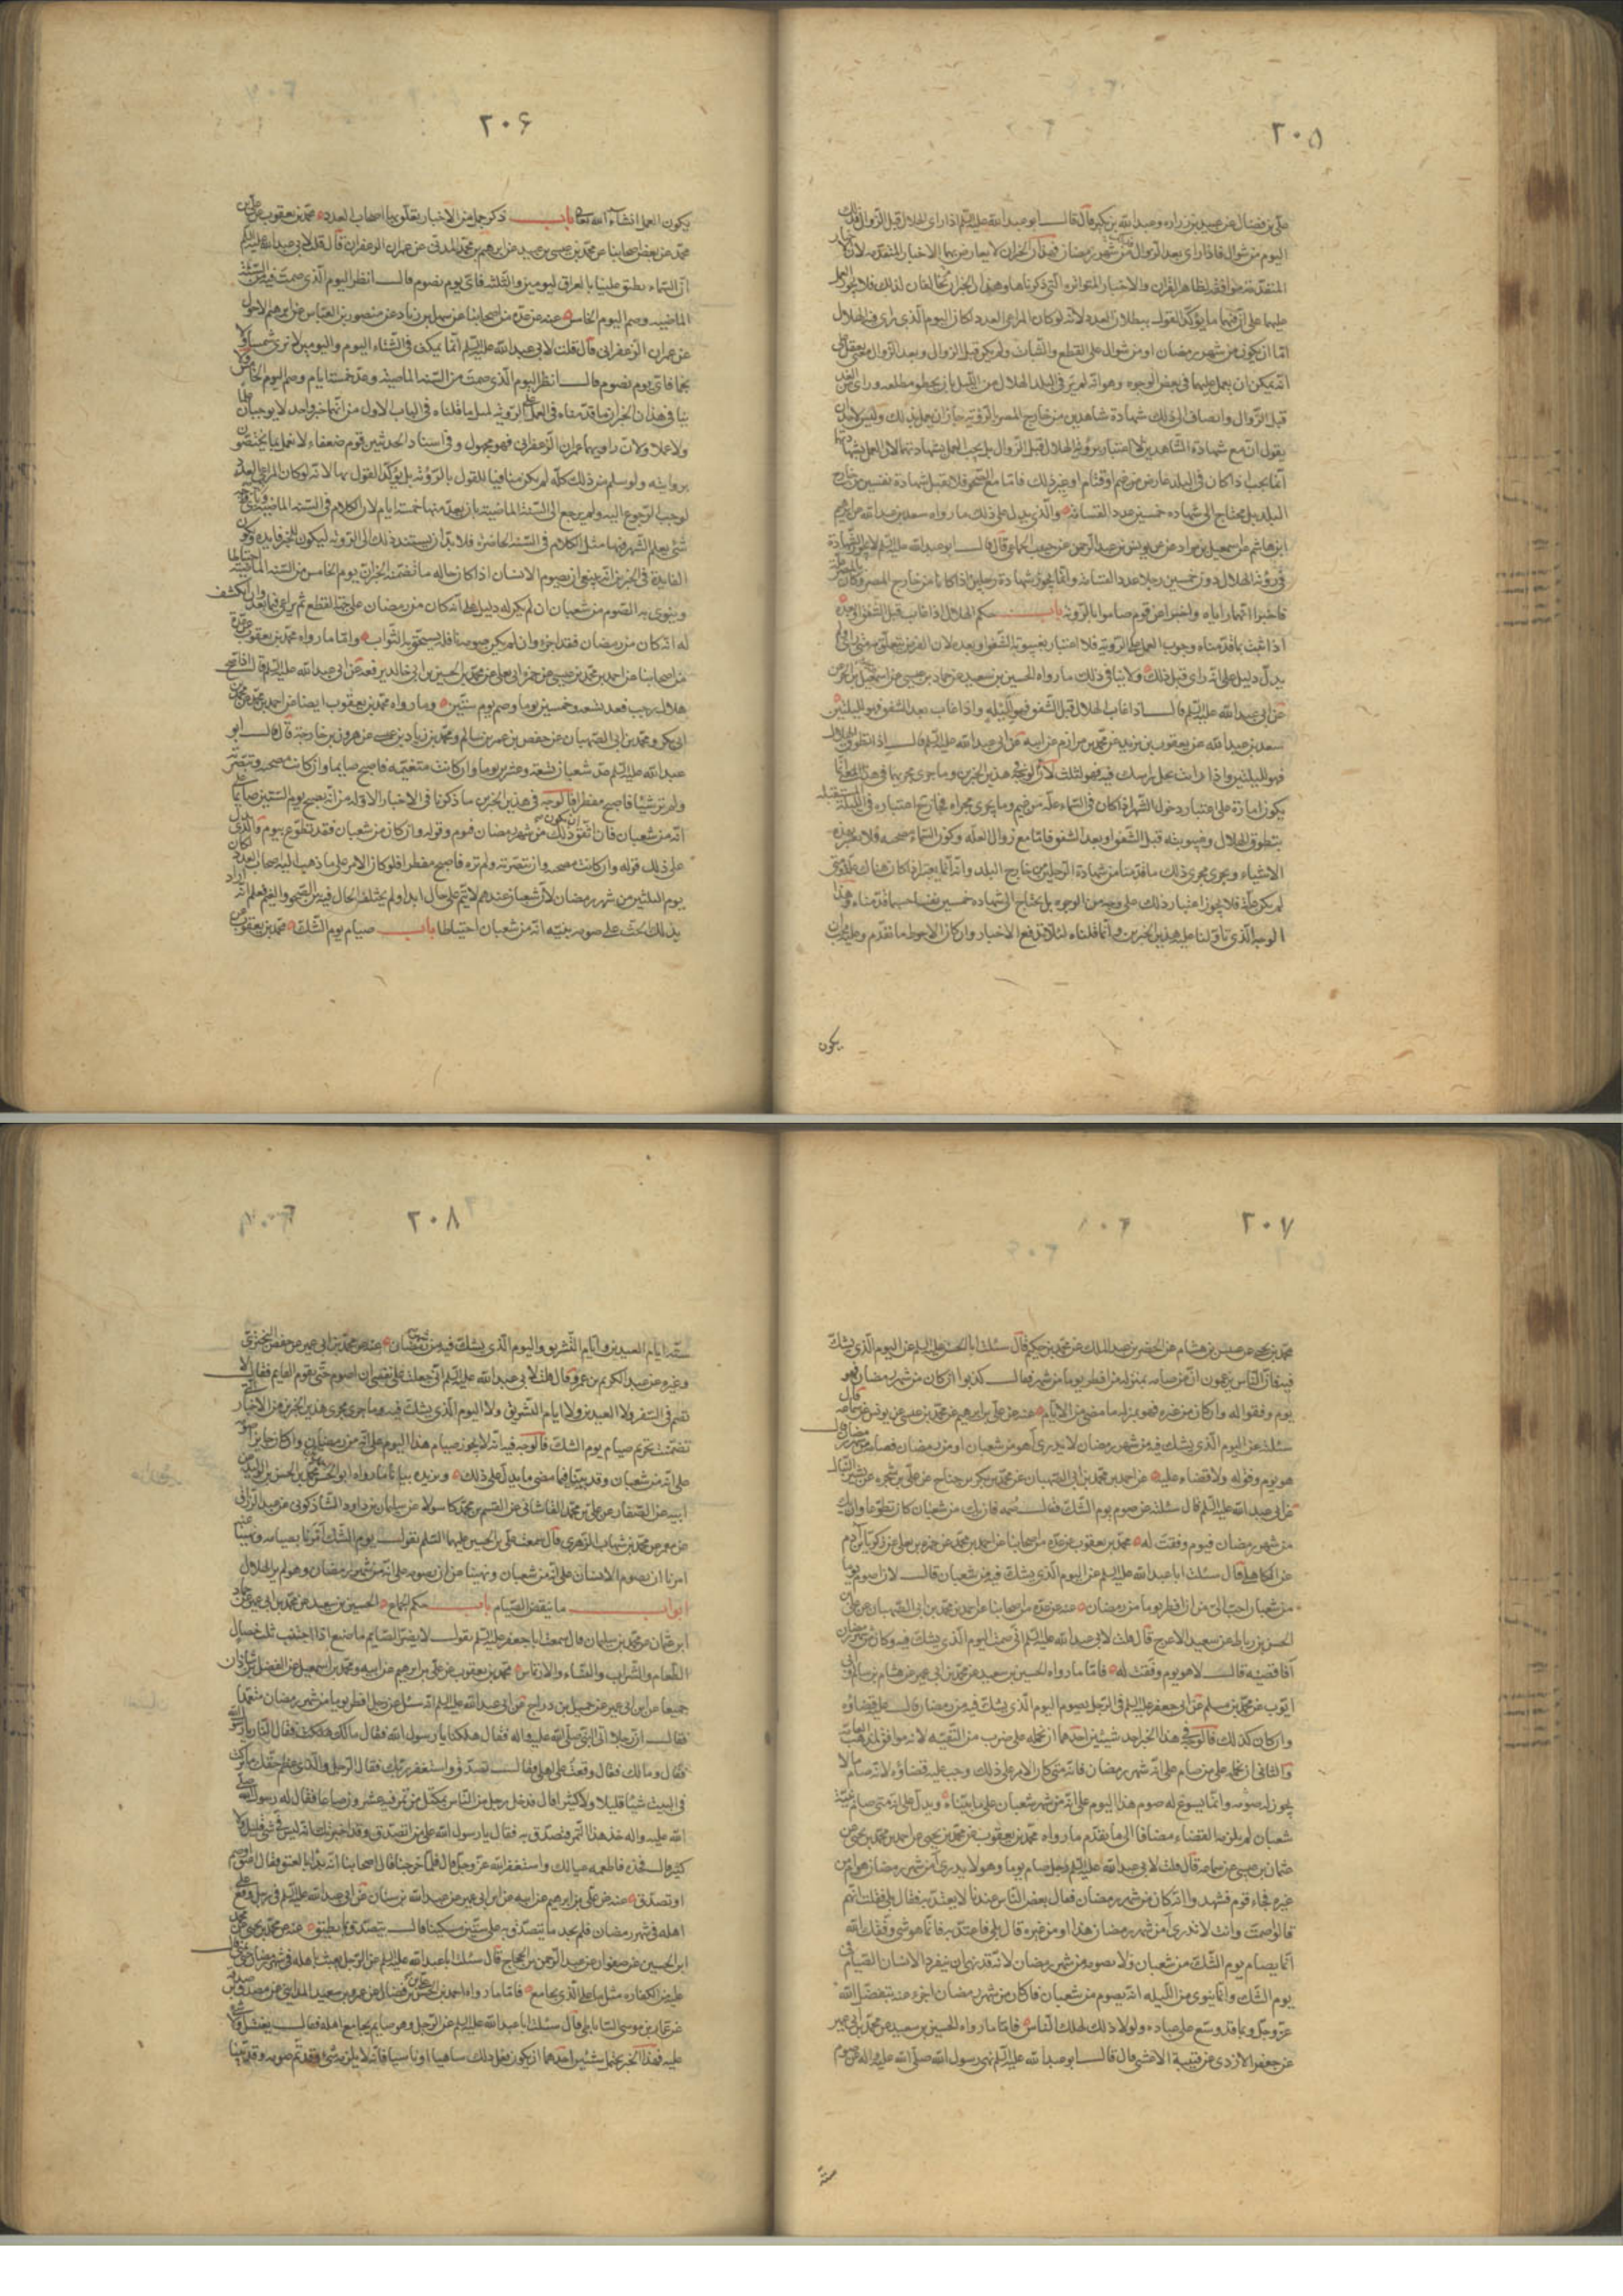 ٢٠٥
علي بن فضال عن عبيد بن زراره وعبد الله بن بكير قال قال ابو عبد الله عليه السلم اذا راى الهلال قبل الزوال فذلك
اليوم من شوال فاذا راى بعد الزوال فهو من شهر رمضان فهذان الخبران لا يعارض بهما الاخبار المتقدمه لان
المتقدمه موافقه لظاهر القران والاخبار المتواتره التي ذكرناها وهذان الخبران مخالفان لذلك فلا يجوز العمل
عليهما على ان فيهما ما يؤكد القول ببطلان العدد لانه لو كان المراعى العدد لكان اليوم الذي راى فيه الهلال
اما ان يكون من شهر رمضان او من شوال على القطع والثبات ولم يكن قبل الزوال وبعد الزوال معنى يعقل على
انه يمكن ان يعمل عليهما في بعض الوجوه وهو انه لم ير في البلد الهلال من الليل بان يخطو مطلعه وراى من الغد
قبل الزوال وانضاف الى ذلك شهادة شاهدين من خارج المصر الرؤيه جاز ان يعمل بذلك وليس لاحد ان
يقول ان مع شهادة الشاهدين لا اعتبار برؤية الهلال قبل الزوال بل يجب العمل بشهادتهما لان العمل بشهادتهما
انما يجب اذا كان في البلد عارض من غيم او قتام او غير ذلك فاما مع الصحو فلا يقبل شهادة نفسين من خارج
البلد بل يحتاج الى شهاده خمسين عدد القسامه والذي يدل على ذلك ما رواه سعد بن عبد الله عن ابرهيم
ابن هاشم عن اسمعيل بن مرار عن يونس بن عبد الرحمن عن حبيب الجماعي قال قال ابو عبد الله عليه السلم لا يجوز الشهادة
في رؤية الهلال دون خمسين رجلا عدد القسامه وانما يجوز شهادة رجلين اذا كانا من خارج المصر وكان بالمصر علة
فاخبرا انهما راياه واخبرا عن قوم صاموا بالرؤيه باب حكم الهلال اذا غاب قبل الشفق او بعده
اذا ثبت بما قدمناه وجوب العمل على الرؤيه فلا اعتبار بغيبوبة الشفق او بعده لان الفرض يتعلق متى راى ولم
يدل دليل على انه راى قبل ذلك ولا ينافي ذلك ما رواه الحسين بن سعيد عن حماد بن عيسى عن اسمعيل بن الحر عن
عن ابي عبد الله عليه السلم قال اذا غاب الهلال قبل الشفق فهو لليلة واذا غاب بعد الشفق فهو لليلتين
سعد بن عبد الله عن يعقوب بن يزيد عن محمد بن مرازم عن ابيه عن ابي عبد الله عليه السلم قال اذا تطوق الهلال
فهو لليلتين واذا رايت ظل راسك فيه فهو لثلث لان الوجه في هذين الخبرين وما جرى مجريهما في هذا المعنى انما
يكون امارة على اعتبار دخول الشهر اذا كان في السماء علة من غيم وما يجري مجراه فجاز حينئذ اعتباره في الليلة المستقبله
بتطوق الهلال وغيبوبته قبل الشفق او بعد الشفق فاما مع زوال العله وكون السماء مصحيه فلا يعتبر هذه
الاشياء ويجري مجرى ذلك ما قدمنا من شهادة الرجلين من خارج البلد وانه انما يعتبر اذا كان هناك علة ومتى
لم يكن علة فلا يجوز اعتبار ذلك على وجه من الوجوه بل يحتاج الى شهاده خمسين نفسا حسب ما قدمناه وهذا
الوجه الذي تاولنا عليه هذين الخبرين وانما قلناه لئلا تدفع الاخبار وان كان الاحوط ما تقدم وعليه يجب ان
يكون
٢٠۶
يكون العمل انشاء الله تعالى باب ذكر جمل من الاخبار يتعلق بها اصحاب العدد محمد بن يعقوب عن علي بن
محمد عن بعض اصحابنا عن محمد بن عيسى بن عبيد عن ابرهيم بن محمد المدني عن عمران الزعفراني قال قلت لابي عبد الله عليه السلم
ان السماء تطبق علينا بالعراق اليومين والثلثه فاي يوم نصوم قال انظر اليوم الذي صمت فيه من السنة
الماضيه وصم اليوم الخامس عنه عن عدة من اصحابنا عن سهل بن زياد عن منصور بن العباس عن ابرهيم الاحول
عن عمران الزعفراني قال قلت لابي عبد الله عليه السلم انا نمكث في الشتاء اليوم واليومين لا نرى شمسا ولا
نجما فاي يوم نصوم قال انظر اليوم الذي صمت من السنه الماضيه وعد خمسة ايام وصم اليوم الخامس فلا
ينافي هذان الخبران ما قدمناه في العمل على الرؤيه لمثل ما قلناه في الباب الاول من انهما خبر واحد لا يوجبان علما
ولا عملا ولان راويهما عمران الزعفراني فهو مجهول وفي اسناد الحديثين قوم ضعفاء لا نعمل بما يختصون
بروايته ولو سلم من ذلك كله لم يكن منافيا للقول بالرؤيه بل يؤكد القول بها لانه لو كان المراعى العدد
لوجب الرجوع اليه ولم يرجع الى السنة الماضية بان يعد منها خمسة ايام لان الكلام في السنه الماضيه
شيء يعلم الشهر فيها مثل الكلام في السنه الحاضره فلا بد ان يستند ذلك الى الرؤيه ليكون للخبر فايده وتكون
الفايدة في الخبرين انه ينبغي ان يصوم الانسان اذا كان حاله ما تضمنه الخبران يوم الخامس من السنه الماضيه احتياطا
وينوي به الصوم من شعبان ان لم يكن له دليل على انه كان من رمضان على جهة القطع ثم يراعي فيما بعد فان انكشف
له انه كان من رمضان فقد اجزاه وان لم يكن صومه نافلة يستحق به الثواب واما ما رواه محمد بن يعقوب عن عدة
من اصحابنا عن احمد بن محمد بن عيسى عن حمزة ابي يعلى عن محمد بن الحسين بن ابي خالد يرفعه عن ابي عبد الله عليه السلم قال اذا صح
هلال رجب فعد تسعه وخمسين يوما وصم يوم ستين وما رواه محمد بن يعقوب ايضا عن احمد بن محمد عن محمد بن
ابي بكر ومحمد بن ابي الصهبان عن حفص بن عمر بن سالم ومحمد بن زياد بن عيسى عن هرون بن خارجة قال قال ابو
عبد الله عليه السلم عد شعبان تسعة وعشرين يوما وان كانت متغيمه فاصبح صايما وان كانت مصحيه وتبصرت
ولم تر شيئا فاصبح مفطرا فالوجه في هذين الخبرين ما ذكرنا في الاخبار الاولة من انه يصبح يوم الستين صايما على
انه من شعبان فان اتفق ان يكون ذلك من شهر رمضان فيوم وفق له وان كان من شعبان فقد تطوع بيوم والذي يدل
على ذلك قوله وان كانت مصحيه وتبصرته ولم تره فاصبح مفطرا فلو كان الامر على ما ذهب اليه اصحاب العدد لكان
يوم الثلثين من شهر رمضان لان شعبان عندهم لا يتم على حال ابدا ولم يختلف الحال فيه بين الصحو والغيم فعلم انه اراد
بذلك الحث على صومه بنية انه من شعبان احتياطا باب صيام يوم الشك محمد بن يعقوب عن
٢٠٧
محمد بن يحيى عن عيسى بن هشام عن الخضر بن عبد الملك عن محمد بن حكيم قال سئلت ابا الحسن عليه السلم عن اليوم الذي يشك
فيه فان الناس يزعمون ان من صامه بمنزلة من افطر يوما من شهر رمضان فقال كذبوا ان كان من شهر رمضان فهو
يوم وفقوا له وان كان من غيره فهو بمنزله ما مضى من الايام عنه عن علي بن ابرهيم عن محمد بن عيسى عن يونس عن سماعه قال
سئلته عن اليوم الذي يشك فيه من شهر رمضان لا يدرى اهو من شعبان او من رمضان فصامه من شهر رمضان قال
هو يوم وفق له ولا قضاء عليه عن احمد بن محمد بن ابي الصهبان عن محمد بن بكر بن جناح عن علي بن شجره عن بشير النبال
عن ابي عبد الله عليه السلم قال سئلته عن صوم يوم الشك فقال صمه فان يك من شعبان كان تطوعا وان يك
من شهر رمضان فيوم وفقت له محمد بن يعقوب عن عدة من اصحابنا عن احمد بن محمد عن حمزه بن يعلى عن زكريا بن ادم
عن الكاهلي قال سئلت ابا عبد الله عليه السلم عن اليوم الذي يشك فيه من شعبان قال لان اصوم يوما
من شعبان احب الي من ان افطر يوما من رمضان عنه عن عدة من اصحابنا عن احمد بن محمد بن ابي الصهبان عن علي بن
الحسن بن رباط عن سعيد الاعرج قال قلت لابي عبد الله عليه السلم اني صمت اليوم الذي يشك فيه وكان من شهر رمضان
افاقضيه قال لا هو يوم وفقت له فاما ما رواه الحسين بن سعيد عن محمد بن ابي عمير عن هشام بن سالم وابي
ايوب عن محمد بن مسلم عن ابي جعفر عليه السلم في الرجل يصوم اليوم الذي يشك فيه من رمضان قال عليه قضاؤه
وان كان كذلك فالوجه في هذا الخبر احد شيئين احدهما ان نحمله على ضرب من التقيه لانه موافق لمذهب العامة
والثاني ان نحمله على من صام على انه شهر رمضان فانه متى كان الامر على ذلك وجب عليه قضاؤه لانه صام ما لا
يجوز له صومه وانما يسوغ له صوم هذا اليوم على انه من شهر شعبان على ما بيناه ويدل على انه متى صام بنية
شعبان لم يلزمه القضاء مضافا الى ما تقدم ما رواه محمد بن يعقوب عن محمد بن يحيى عن احمد بن محمد بن يحيى عن
عثمان بن عيسى عن سماعه قال قلت لابي عبد الله عليه السلم رجل صام يوما وهو لا يدرى امن شهر رمضان هو ام من
غيره فجاء قوم فشهدوا انه كان من شهر رمضان فقال بعض الناس عندنا لا يعتد به فقال بلى فقلت انهم
قالوا صمت وانت لا تدري امن شهر رمضان هذا او من غيره قال بلى فاعتد به فانما هو شيء وفقك الله
انما يصام يوم الشك من شعبان ولا يصومه من شهر رمضان لانه قد نهي ان ينفرد الانسان الصيام في
يوم الشك وانما ينوي من الليله انه يصوم من شعبان فان كان من شهر رمضان اجزء عنه بتفضل الله
عز وجل وبما قد وسع على عباده ولولا ذلك لهلك الناس فاما ما رواه الحسين بن سعيد عن محمد بن ابي عمير
عن جعفر الازدي عن قتيبة الاعشى قال قال ابو عبد الله عليه السلم نهى رسول الله صلى الله عليه واله عن صوم
ستة
٢٠٨
ستة ايام العيدين وايام التشريق واليوم الذي يشك فيه من شهر رمضان عنه عن محمد بن ابي عمير عن حفص بن البختري
وغيره عن عبد الكريم بن عمرو قال قلت لابي عبد الله عليه السلم اني جعلت على نفسي ان اصوم حتى يقوم القايم فقال لا
تصم في السفر ولا العيدين ولا ايام التشريق ولا اليوم الذي يشك فيه وما جرى مجرى هذين الخبرين من الاخبار التي
تضمنت تحريم صيام يوم الشك فالوجه فيه انه لا يجوز صيام هذا اليوم على انه من رمضان وان كان جايزا صومه
على انه من شعبان وقد بينا فيما مضى ما يدل على ذلك ويزيده بيانا ما رواه ابو الحسن محمد بن الحسن بن الوليد عن
ابيه عن الصفار عن علي بن محمد القاشاني عن القسم بن محمد كاسولا عن سليمان بن داود الشاذكوني عن عبد الرزاق
عن معمر عن محمد بن شهاب الزهري قال سمعت علي بن الحسين عليهما السلم يقول يوم الشك امرنا بصيامه ونهينا عنه
امرنا ان يصوم الانسان على انه من شعبان ونهينا عن ان نصومه على انه من شهر رمضان وهو لم ير الهلال
ابواب ما ينقض الصيام باب حكم الجماع الحسين بن سعيد عن محمد بن ابي عمير عن حماد
ابن عثمان عن محمد بن مسلم قال سمعت ابا جعفر عليه السلم يقول لا يضر الصايم ما صنع اذا اجتنب ثلث خصال
الطعام والشراب والنساء والارتماس محمد بن يعقوب عن علي بن ابرهيم عن ابيه ومحمد بن اسمعيل عن الفضل بن شاذان
جميعا عن ابن ابي عمير عن جميل بن دراج عن ابي عبد الله عليه السلم انه سئل عن رجل افطر يوما من شهر رمضان متعمدا
فقال ان رجلا اتى النبي صلى الله عليه واله فقال هلكت يا رسول الله فقال مالك هلكت فقال النار يا رسول الله
فقال وما لك فقال وقعت على اهلي فقال تصدق واستغفر ربك فقال الرجل والذي عظم حقك ما تركت
في البيت شيئا قليلا ولا كثيرا قال فدخل رجل من الناس بمكتل من تمر فيه عشرون صاعا فقال له رسول الله صلى
الله عليه واله خذ هذا التمر فتصدق به فقال يا رسول الله على من اتصدق وقد اخبرتك انه ليس في بيتي قليل ولا
كثير قال فخذه فاطعمه عيالك واستغفر الله عز وجل قال فلما خرجنا قال اصحابنا انه بدا بالعتق فقال اعتق او صم
او تصدق عنه عن علي بن ابرهيم عن ابيه عن ابن ابي عمير عن عبد الله بن سنان عن ابي عبد الله عليه السلم في رجل وقع على
اهله في شهر رمضان فلم يجد ما يتصدق به على ستين مسكينا قال يتصدق بما يطيق عنه عن محمد بن يحيى عن محمد
ابن الحسين عن صفوان عن عبد الرحمن بن الحجاج قال سئلت ابا عبد الله عليه السلم عن الرجل يعبث باهله في شهر رمضان حتى يمني قال
عليه من الكفاره مثل ما على الذي يجامع فاما ما رواه احمد بن الحسن بن علي بن فضال عن عمرو بن سعيد المدايني عن مصدق بن صدقه
عن عمار بن موسى الساباطي قال سئلت ابا عبد الله عليه السلم عن الرجل وهو صايم يجامع اهله فقال يغتسل ولا شيء
عليه فهذا الخبر يحتمل شيئين احدهما ان يكون فعل ذلك ساهيا او ناسيا فانه لا يلزمه شيء وقد تم صومه وقد بينا